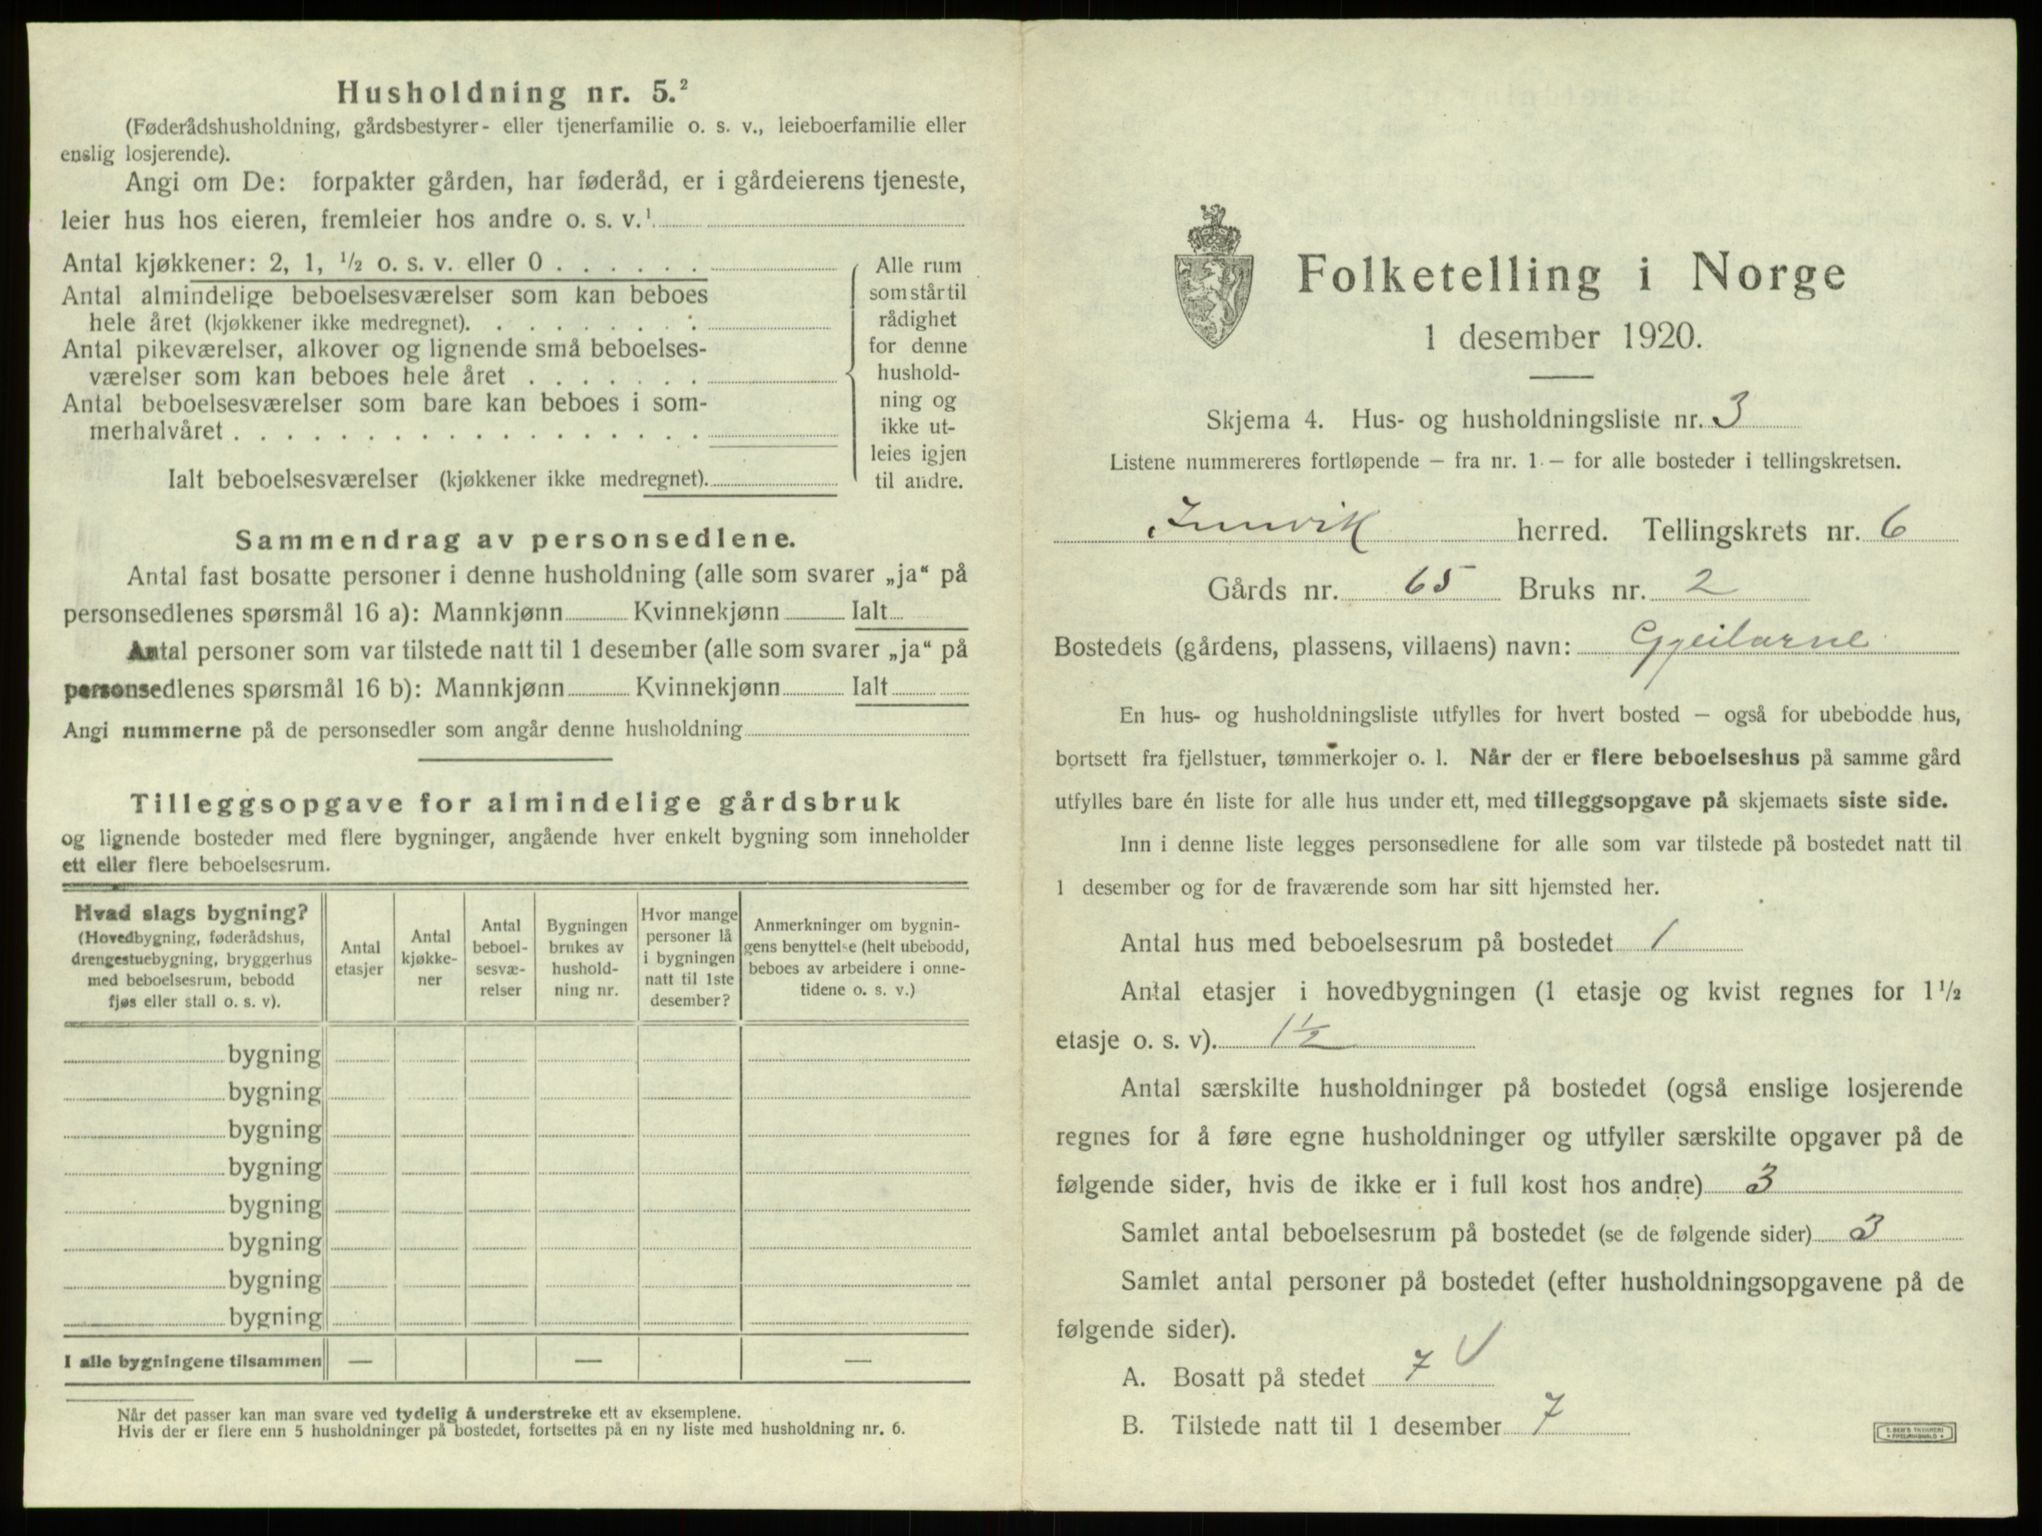 Husholdning nr. 5.²
(Føderådshusholdning, gårdsbestyrer- eller tjenerfamilie o. s. v., leieboerfamilie eller
enslig losjerende).
Angi om De: forpakter gården, har føderåd, er i gårdeierens tjeneste,
leier hus hos eieren, fremleier hos andre o. s. v.¹
Antal kjøkkener: 2, 1, ½ o. s. v. eller 0 . . . . . .
Antal almindelige beboelsesværelser som kan beboes
hele året (kjøkkener ikke medregnet). . . . . . . . .
Antal pikeværelser, alkover og lignende små beboelses-
værelser som kan beboes hele året . . . . . . .
Antal beboelsesværelser som bare kan beboes i som-
merhalvåret . . . . . . . . . . . . . . . . . .
Ialt beboelsesværelser (kjøkkener ikke medregnet).
Alle rum
som står til
rådighet
for denne
hushold-
ning og
ikke ut-
leies igjen
til andre.
Sammendrag av personsedlene.
Antal fast bosatte personer i denne husholdning (alle som svarer „ja“ på
personsedlenes spørsmål 16 a): Mannkjønn Kvinnekjønn Ialt
Antal personer som var tilstede natt til 1 desember (alle som svarer „ja“ på
personsedlenes spørsmål 16 b): Mannkjønn Kvinnekjønn Ialt
Angi nummerne på de personsedler som angår denne husholdning
Tilleggsopgave for almindelige gårdsbruk
og lignende bosteder med flere bygninger, angående hver enkelt bygning som inneholder
ett eller flere beboelsesrum.
Hvad slags bygning?
(Hovedbygning, føderådshus,
drengestuebygning, bryggerhus
med beboelsesrum, bebodd
fjøs eller stall o. s. v).
Antal
etasjer
Antal
kjøkke-
ner
Antal
beboel-
sesvæ-
relser
Bygningen
brukes av
hushold-
ning nr.
Hvor mange
personer lå
i bygningen
natt til 1ste
desember?
Anmerkninger om bygnin-
gens benyttelse (helt ubebodd,
beboes av arbeidere i onne-
tidene o. s. v.)
bygning
bygning
bygning
bygning
bygning
bygning
bygning
bygning
I alle bygningene tilsammen — — —
Når det passer kan man svare ved tydelig å understreke ett av eksemplene.
Hvis der er flere enn 5 husholdninger på bostedet, fortsettes på en ny liste med husholdning nr. 6.
Folketelling i Norge
1 desember 1920.
Skjema 4. Hus- og husholdningsliste nr. 3
Listene nummereres fortløpende – fra nr. 1 – for alle bosteder i tellingskretsen.
Innvik herred. Tellingskrets nr. 6
Gårds nr. 65 Bruks nr. 2
Bostedets (gårdens, plassens, villaens) navn: Gjeilarne
En hus- og husholdningsliste utfylles for hvert bosted – også for ubebodde hus,
bortsett fra fjellstuer, tømmerkojer o. l. Når der er flere beboelseshus på samme gård
utfylles bare én liste for alle hus under ett, med tilleggsopgave på skjemaets siste side.
Inn i denne liste legges personsedlene for alle som var tilstede på bostedet natt til
1 desember og for de fraværende som har sitt hjemsted her.
Antal hus med beboelsesrum på bostedet 1
Antal etasjer i hovedbygningen (1 etasje og kvist regnes for 1½
etasje o. s. v). 1½
Antal særskilte husholdninger på bostedet (også enslige losjerende
regnes for å føre egne husholdninger og utfyller særskilte opgaver på de
følgende sider, hvis de ikke er i full kost hos andre) 3
Samlet antal beboelsesrum på bostedet (se de følgende sider) 3
Samlet antal personer på bostedet (efter husholdningsopgavene på de
følgende sider).
A. Bosatt på stedet 7 V
B. Tilstede natt til 1 desember 7